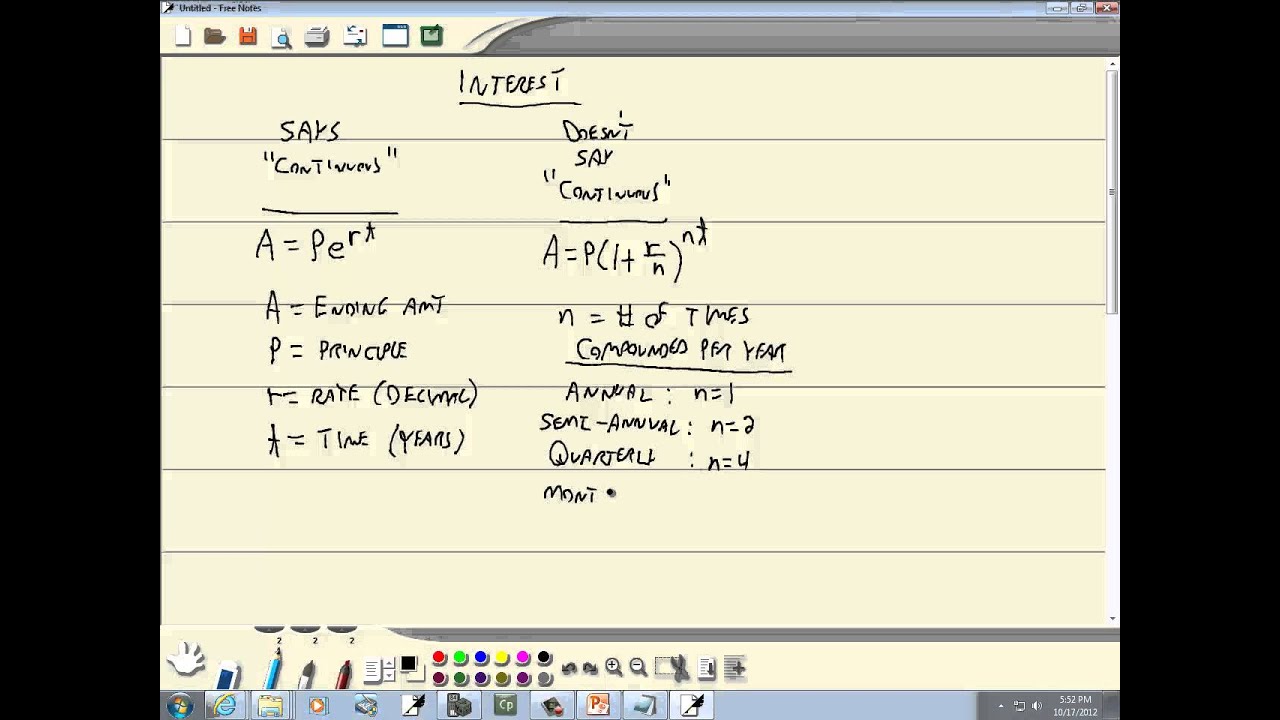 Untitled - Free Notes
INTEREST
SAYS
"CONTINUOUS"
A = Pe^rt
A = ENDING AMT
P = PRINCIPLE
r = RATE (DECIMAL)
t = TIME (YEARS)
DOESN'T
SAY
"CONTINUOUS"
A = P(1 + r/n)^nt
n = # OF TIMES
COMPOUNDED PER YEAR
ANNUAL : n=1
SEMI-ANNUAL : n=2
QUARTERLY : n=4
MONT
2 2 2
Cp
5:52 PM
10/17/2012